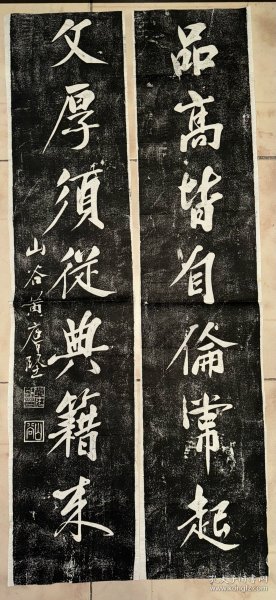 品高皆自倫常起
文厚須從典籍来
山谷黄庭堅